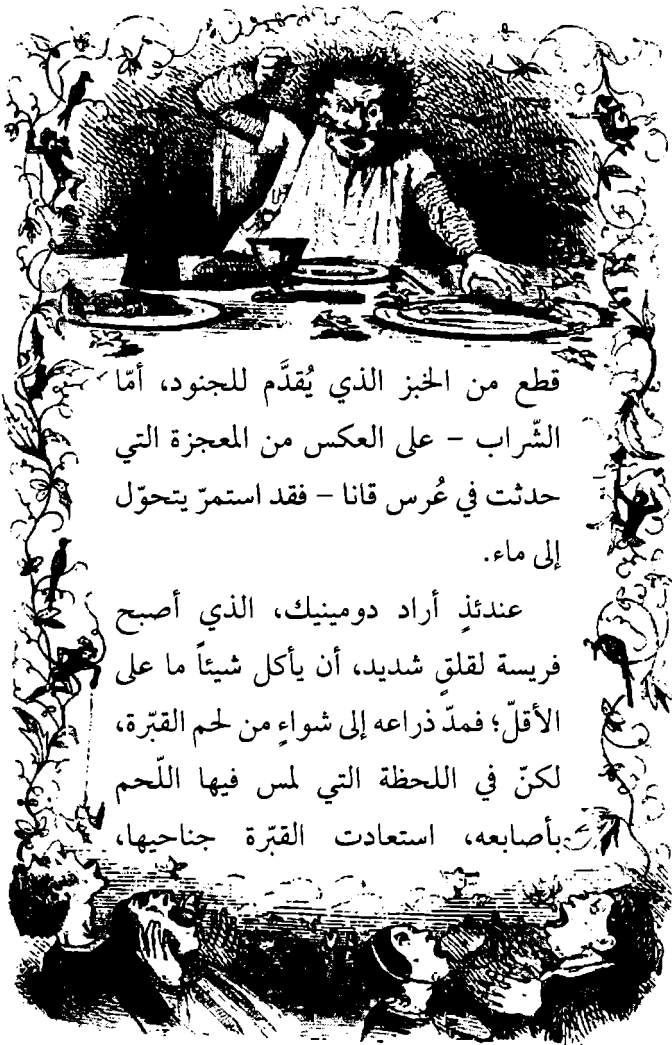 قطع من الخبز الذي يُقدَّم للجنود، أمّا
الشّراب – على العكس من المعجزة التي
حدثت في عُرس قانا – فقد استمرّ يتحوّل
إلى ماء.
عندئذٍ أراد دومينيك، الذي أصبح
فريسة لقلقٍ شديد، أن يأكل شيئاً ما على
الأقلّ؛ فمدّ ذراعه إلى شواءٍ من لحم القبّرة،
لكنّ في اللحظة التي لمس فيها اللّحم
بأصابعه، استعادت القبّرة جناحيها،